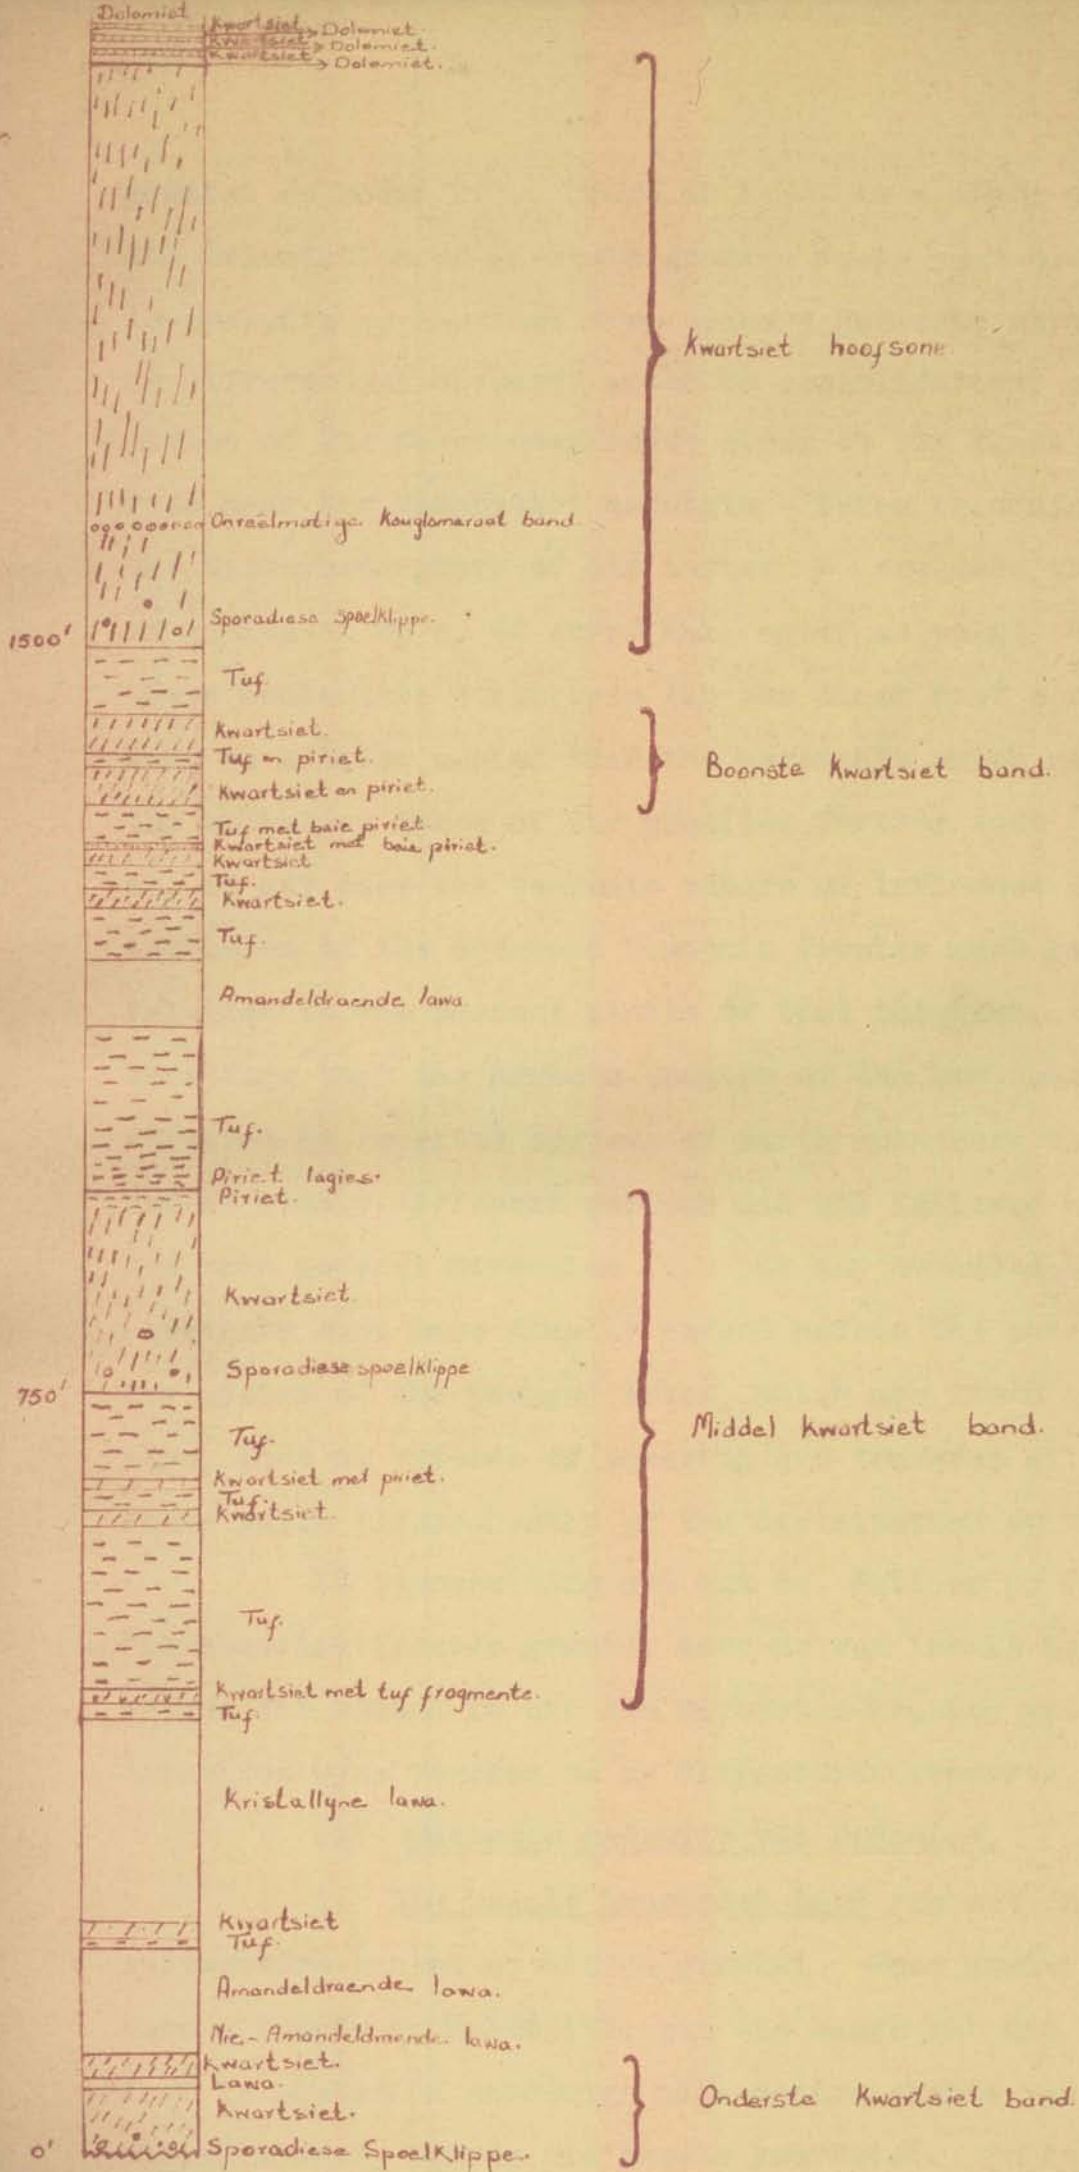 Dolomiet
Kwartsiet Dolomiet.
Kwartsiet Dolomiet.
Kwartsiet Dolomiet.
Kwartsiet hoofsone
Onreëlmatige Konglomeraat band
Sporadiese spoelklippe.
1500'
Tuf.
Kwartsiet.
Tuf en piriet.
Boonste Kwartsiet band.
Kwartsiet en piriet.
Tuf met baie piriet
Kwartsiet met baie piriet.
Kwartsiet
Tuf.
Kwartsiet.
Tuf.
Amandeldraende lawa
Tuf.
Piriet lagies.
Piriet.
Kwartsiet
Sporadiese spoelklippe
750'
Middel Kwartsiet band.
Tuf.
Kwartsiet met piriet.
Tuf.
Kwartsiet.
Tuf.
Kwartsiet met tuf fragmente.
Tuf.
Kristallyne lawa.
Kwartsiet
Tuf.
Amandeldraende lawa.
Nie-Amandeldraende lawa.
Kwartsiet.
Lawa.
Onderste Kwartsiet band.
Kwartsiet.
0'
Sporadiese Spoelklippe.